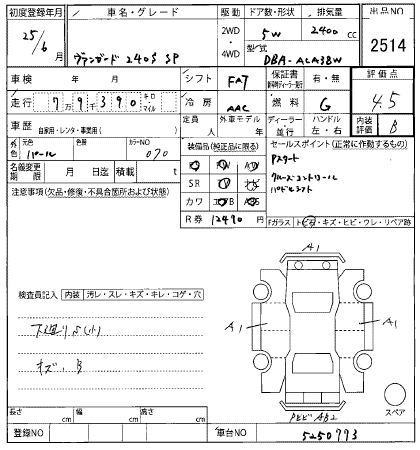 初度登録年月 車名・グレード 駆動 ドア数・形状 排気量 出品NO
25/6 ヴァンガード 240S SP 2WD・4WD 5W 2400 cc 2514
型式 DBA-ACA38W
車検 年 月 シフト FAT 保証書 有・無 評価点 4.5
走行 79390 キロ・マイル 冷房 AAC 燃料 G
車歴 自家用・レンタ・事業用( ) 定員 人 外車モデル年式 ディーラー・並行 ハンドル 左・右 内装評価 B
外色 元色 パール 色替 カラーNO 070
装備品(純正品に限る) セールスポイント(正常に作動するもの)
名義変更期限 月 日迄 積載 t
SR
カワ
R券 12490
Pスタート
クルーズコントロール
パドルシフト
注意事項(欠品・修復・不具合箇所および状態)
Fガラス トビ石・キズ・ヒビ・ウレ・リペア跡
A1
検査員記入 内装 汚レ・スレ・キズ・キレ・コゲ・穴
A1
A1
下廻りS(小)
キズ、B
スペア
長さ cm 幅 cm 高さ cm
登録NO 車台NO 5250773